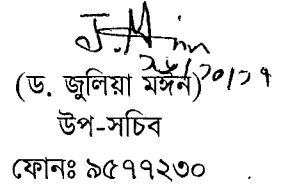 (ড. জুলিয়া মঈন)
উপ-সচিব
ফোনঃ ৯৫৭৭২৩০